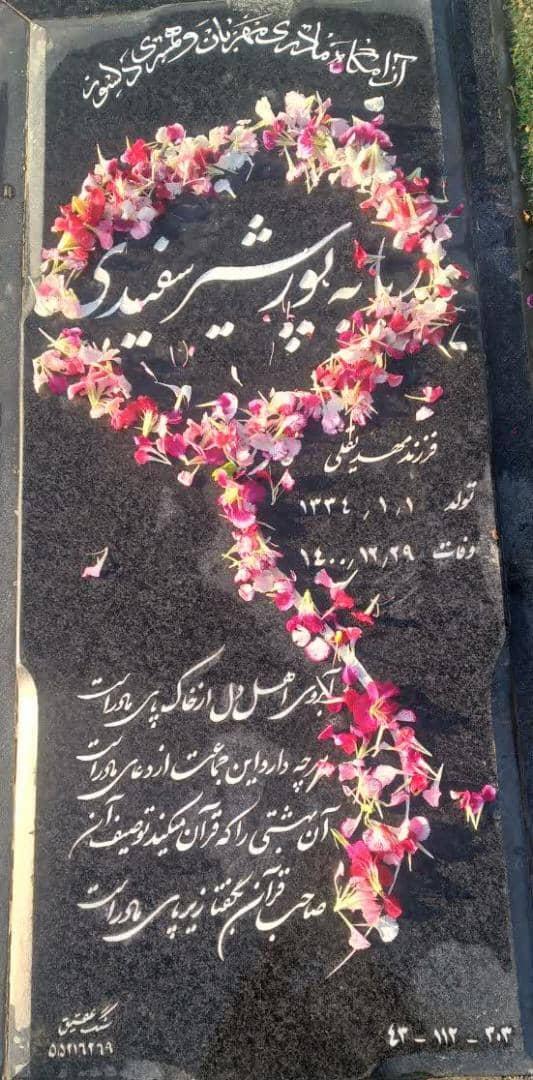 آرامگاه مادری مهربان و همسری دلسوز
ربابه پورشیرسفیدی
فرزند مهدیقلی
تولد ۱۳۳٤/۱/۱
وفات ۱٤۰۰/۱۲/۲۹
آبروی اهل دل از خاک پای مادر است
هرچه دارد این جماعت از دعای مادر است
آن بهشتی را که قرآن میکند توصیف آن
صاحب قرآن بگفتا زیر پای مادر است
سنگ عقیق
۵۵۲۱۶۲۶۹
٤۳ - ۱۱۲ - ۲۰۳